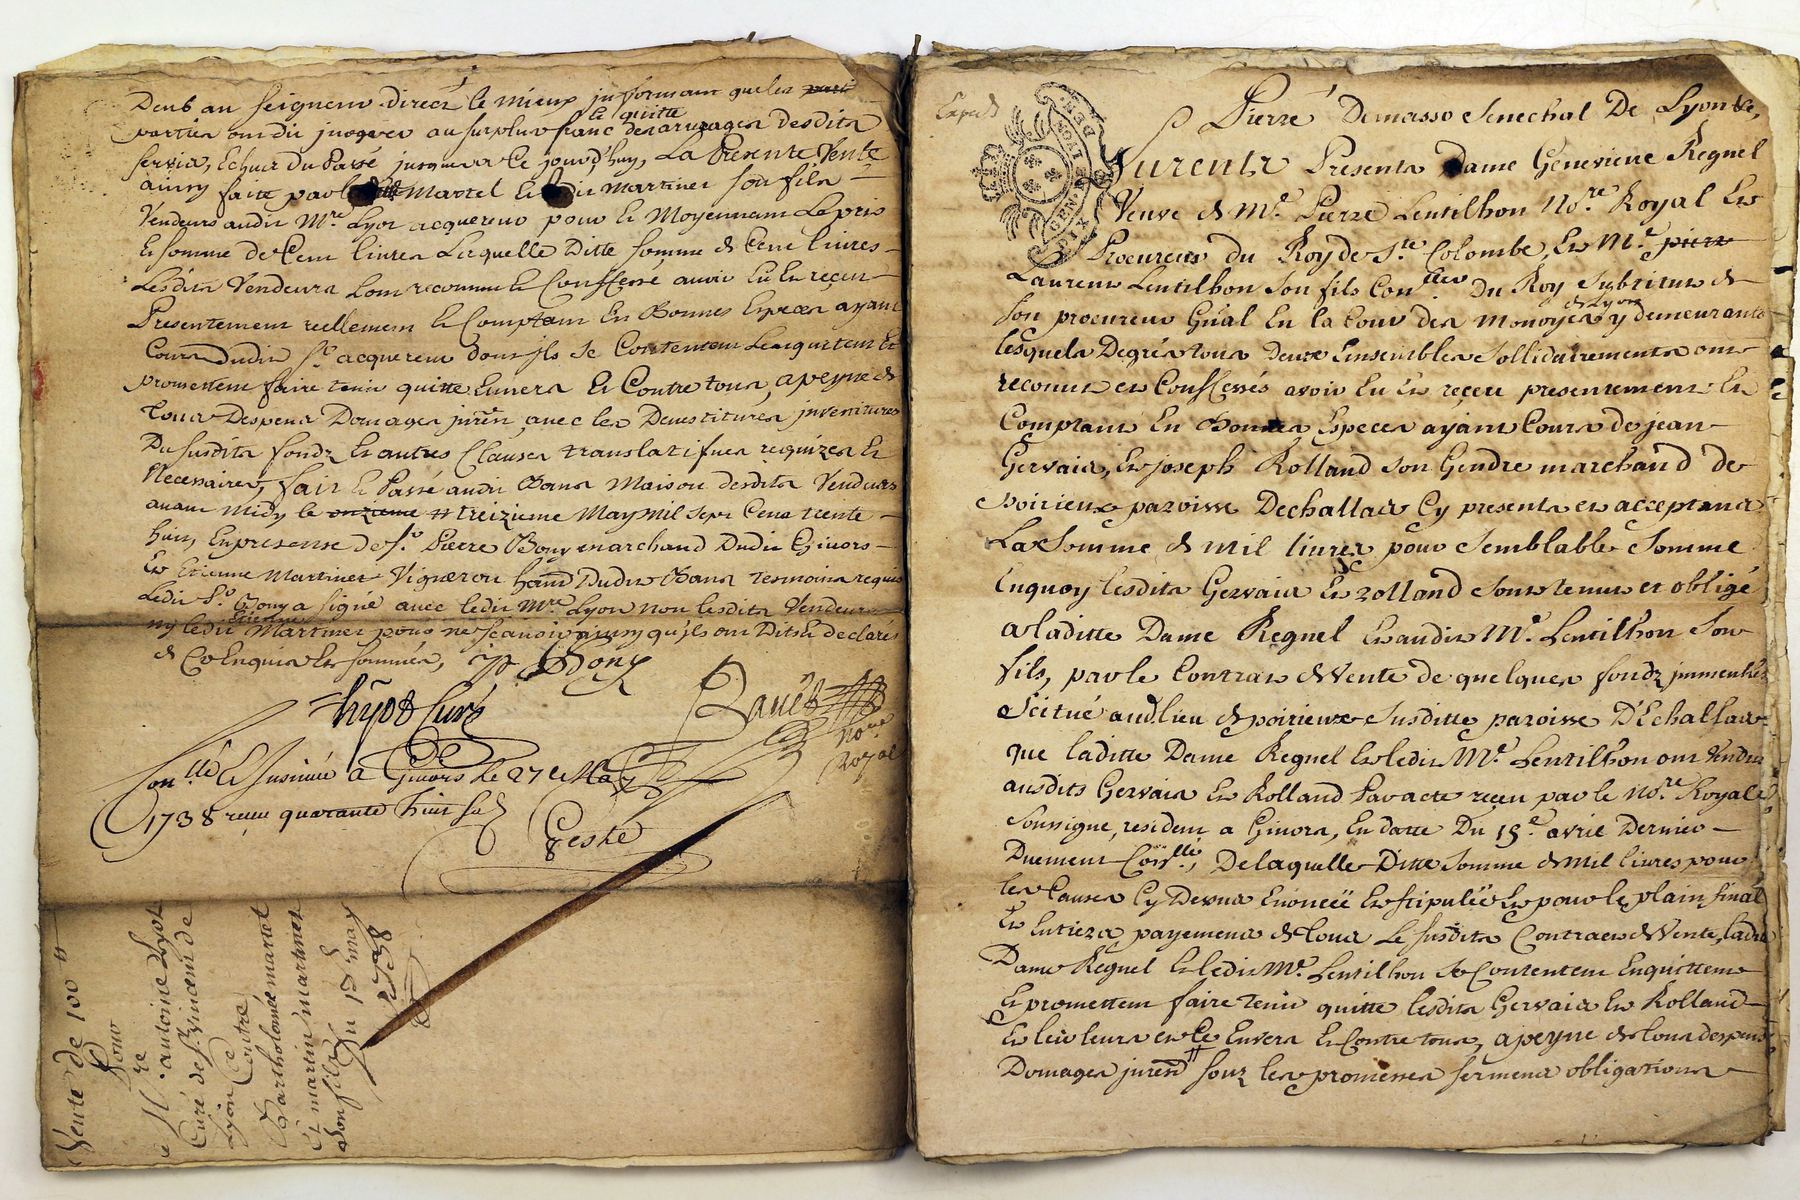 Deub au seigneur direct le mieux informant que les
parties ont dit jnoger au surplus franc et quitte des arrerages desdits
servis, Echus du Passé jusques a Ce jourd'huy, La Presente Vente
ainsy faite par le Martel Et Martinet son fils
Vendeurs audit Mre Lyot acquereur pour Et Moyennant Le pris
Et somme de Cent livres Laquelle Ditte somme de Cent livres
Lesdits Vendeurs Lont reconnu Et Confessé avoir Eu Et reçeu
Presentement reellement Et Comptant En Bonnes Especes ayant
Cours Dudit Sr acquereur dont jls se Contentent Lenquittent Et
promettent faire tenir quitte Envers Et Contre tous, a peyne de
tous Despens Domages jntrets, avec les Devestitures jnvestitures
Du susdits fondz Et autres Clauses translatifues requizes Et
Necessaires, fait Et Passé audit Bans Maison desdits Vendeurs
avant Midy le onzieme treizieme May Mil Sept Cens trente
huit, En presense de Sr Pierre Bony marchand Dudit Givors
Et Etienne Martinet Vigneron Dudit Bans Tesmoins requis
Ledit Sr Bony a signé avec ledit Mre Lyot non lesdits Vendeurs
ny ledit Etienne Martinet pour ne sçavoir ainsy qu'ils ont Dits Et declarés
de Ce Enquis Et sommés, Bony
Lyot Curé
Not.re
Royal
Con.llé Et Jnsinué a Givors le 27e May
1738 reçeu quarante huit s
Geste
Vente de 100 ll
Pour
Mre antoine Lyot
Curé de St Vincent de
Lyon
Contre
Bartholomée martel
Et martin martinet
son fils
Du 13 may
1738
Exped
GEN DE LYON
Pierre Demasso Senechal De Lyon &c.
Furents Presents Dame Genevieve Regnel
Veuve de Me Pierre Lentilhon No.re Royal Et
Procureur du Roy de Ste Colombe, Et Me pierre
Laurent Lentilhon son fils Con.ller Du Roy Substitut de
son procureur Gñal En la Cour des Monoyes de Lyon y demeurants
lesquels Degrés tous deux Ensembles Sollidairements ont
reconus et Conffessés avoir Eu Et reçeu presentement Et
Comptant En Bonnes Especes ayant Cours de jean
Gervais, Et joseph Rolland son Gendre marchand de
poirieux paroisse Dechallas Cy presents et acceptants
La Somme de Mil livres pour Semblable Somme
Enquoy lesdits Gervais Et rolland sont tenus et obligé
a laditte Dame Regnel Et audit Me Lentilhon Son
fils, par le Contrat de Vente de quelques fondz jmmeubles
Scitué audlieu de poirieux Susditte paroisse D'Echallas
que laditte Dame Regnel Et ledit Me Lentilhon ont Vendus
ausdits Gervais Et Rolland Par acte reçeu par le No.re Royal
soussigne, resident a Givors, En datte Du 15e avril Dernier
Duement Con.llé, De laquelle Ditte somme de Mil livres pour
les Causes Cy Dessus Enoncéé Et stipuléé Et pour le plain final
Et Entiers payements de tous Le susdits Contract de Vente, ladte
Dame Regnel Et ledit Me Lentilhon se Contentent Enquittent
Et promettent faire tenir quitte lesdits Gervais Et Rolland
Et les leurs et Ce Envers Et Contre tous, a peyne de tous despens
Domages jntrets souz les promesses serments obligations